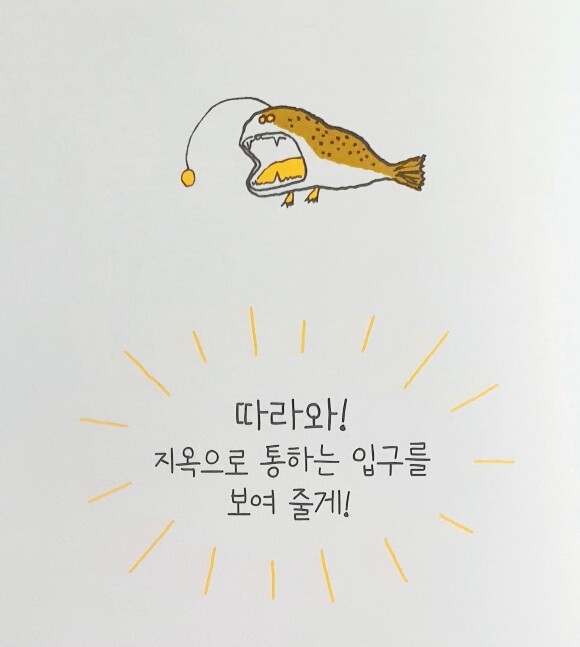 따라와!
지옥으로 통하는 입구를
보여 줄게!